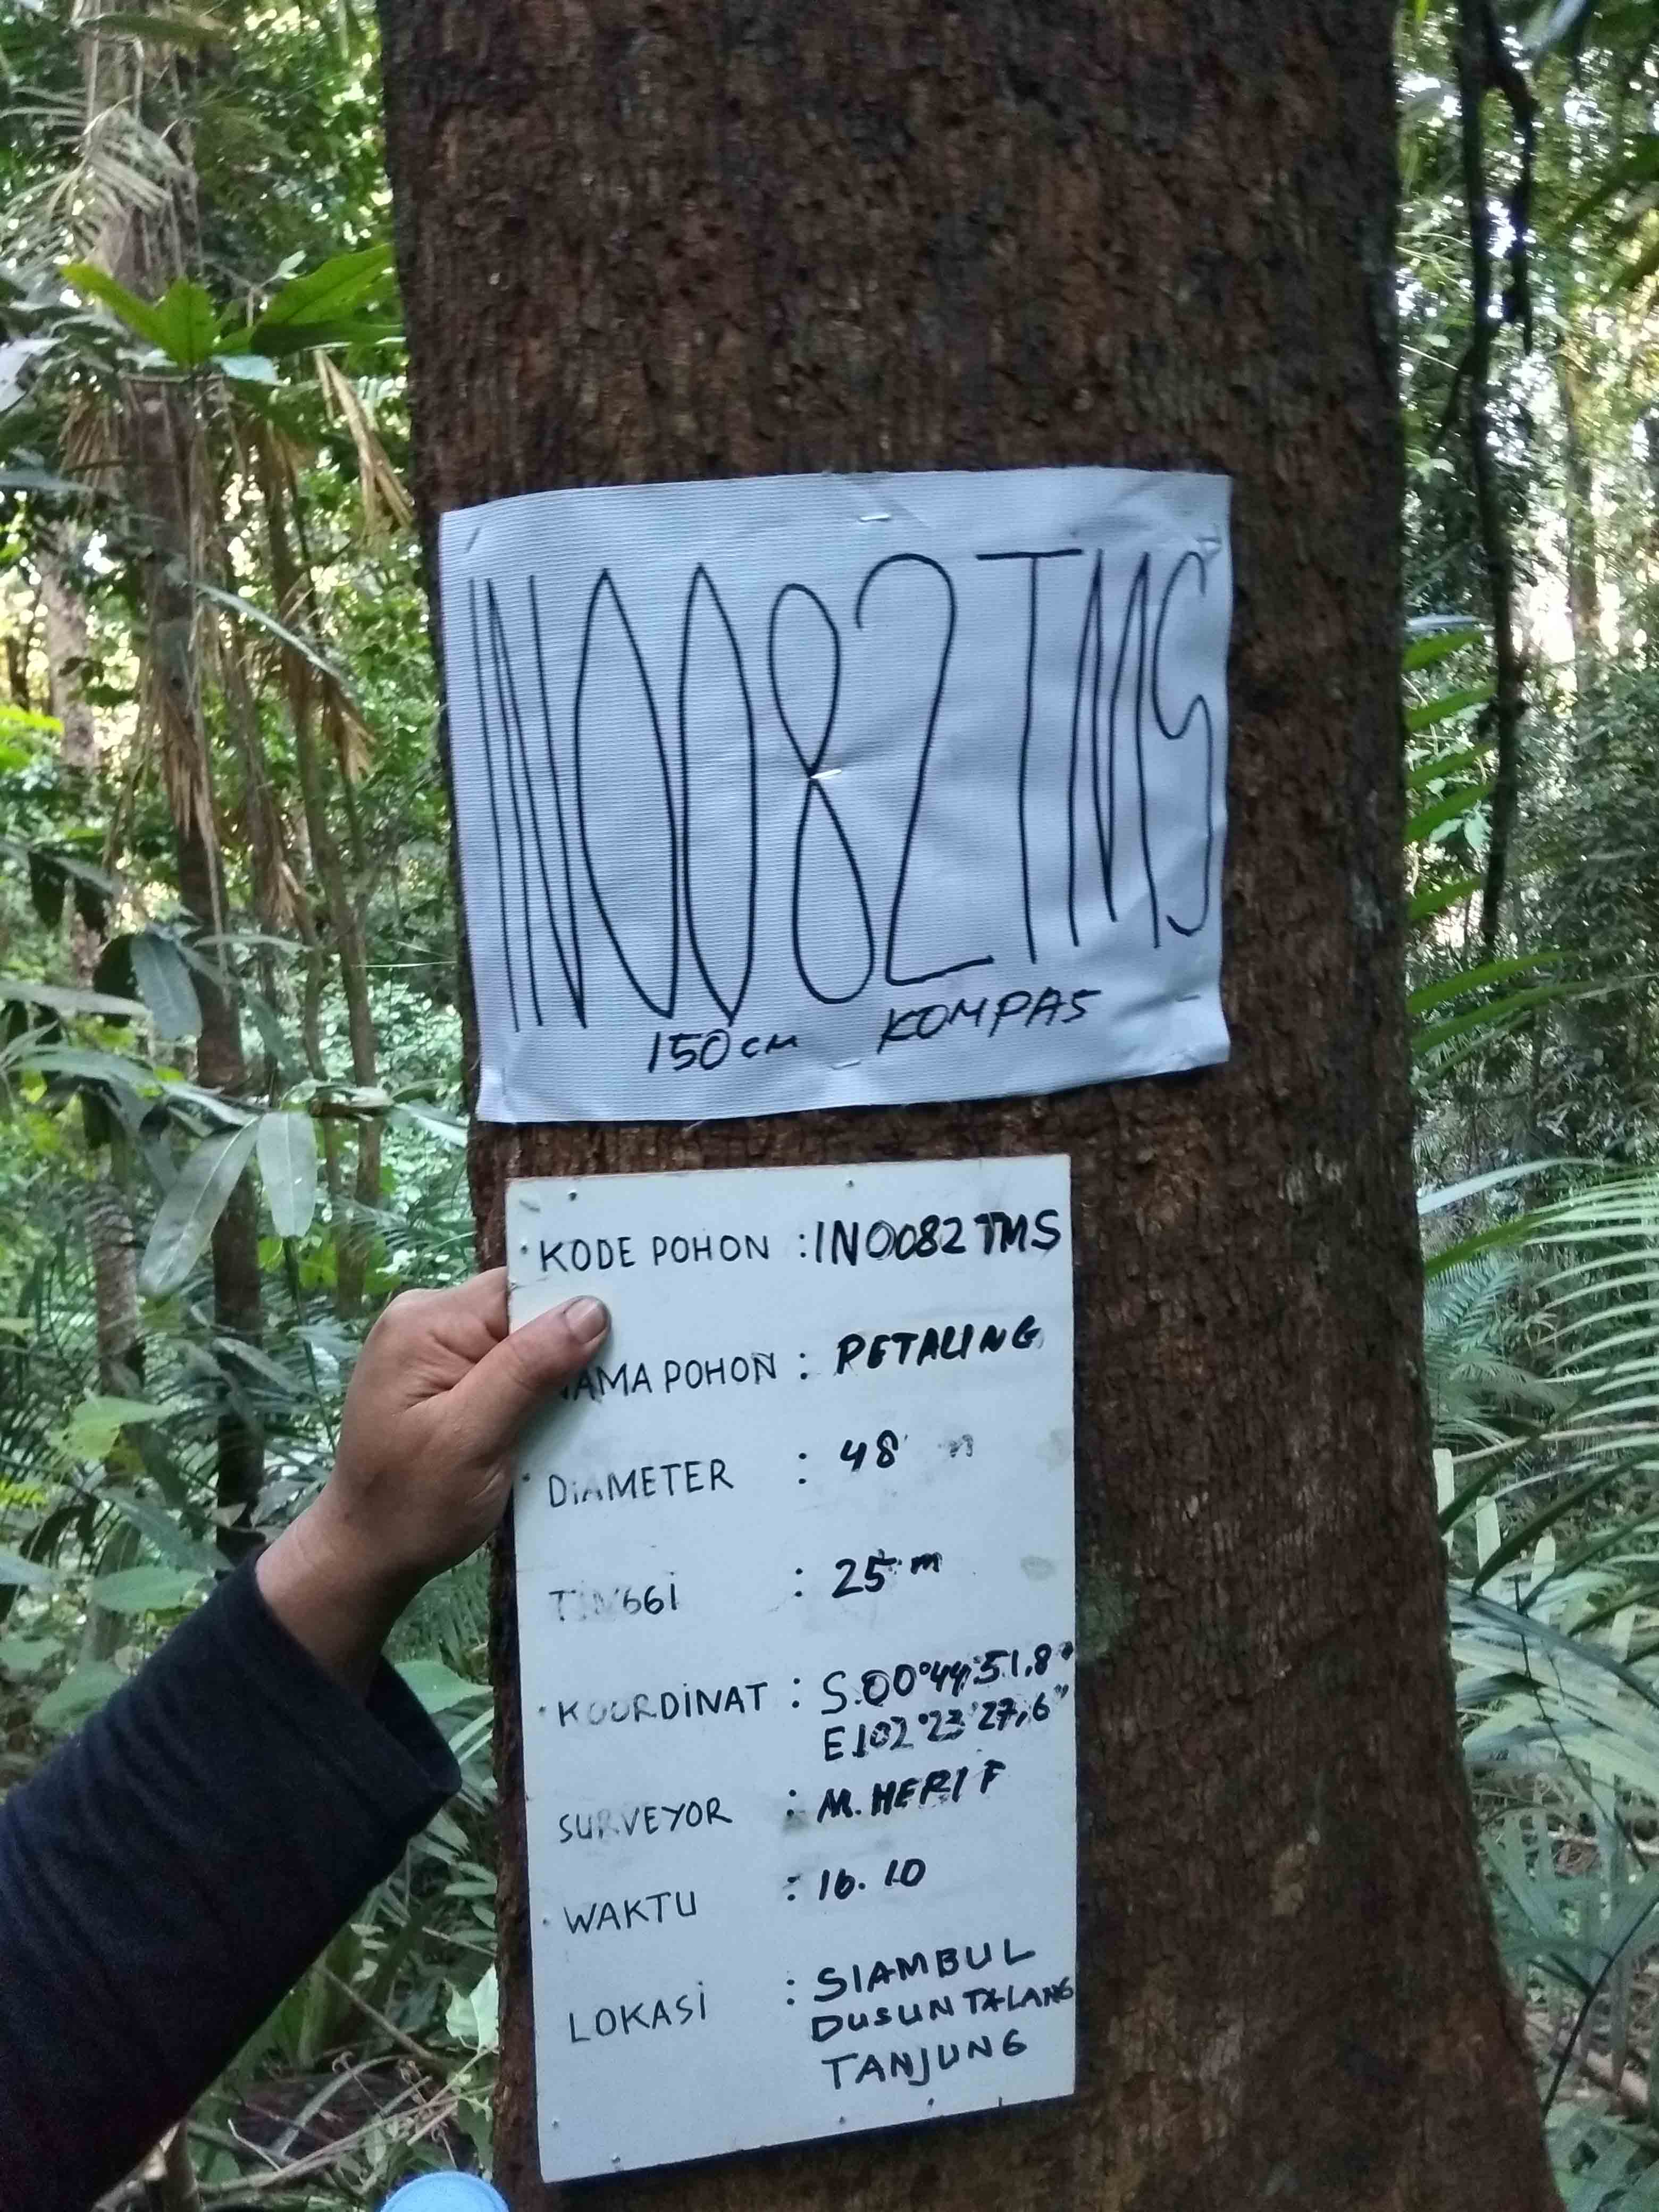 IN0082TMS
150cm KOMPAS
KODE POHON : IN0082 TMS
NAMA POHON : PETALING
DIAMETER : 48 m
TINGGI : 25 m
KOORDINAT : S.00°44'51.8"
E102°23'27,6"
SURVEYOR : M. HERI F
WAKTU : 16.10
LOKASI : SIAMBUL
DUSUN TALANG
TANJUNG